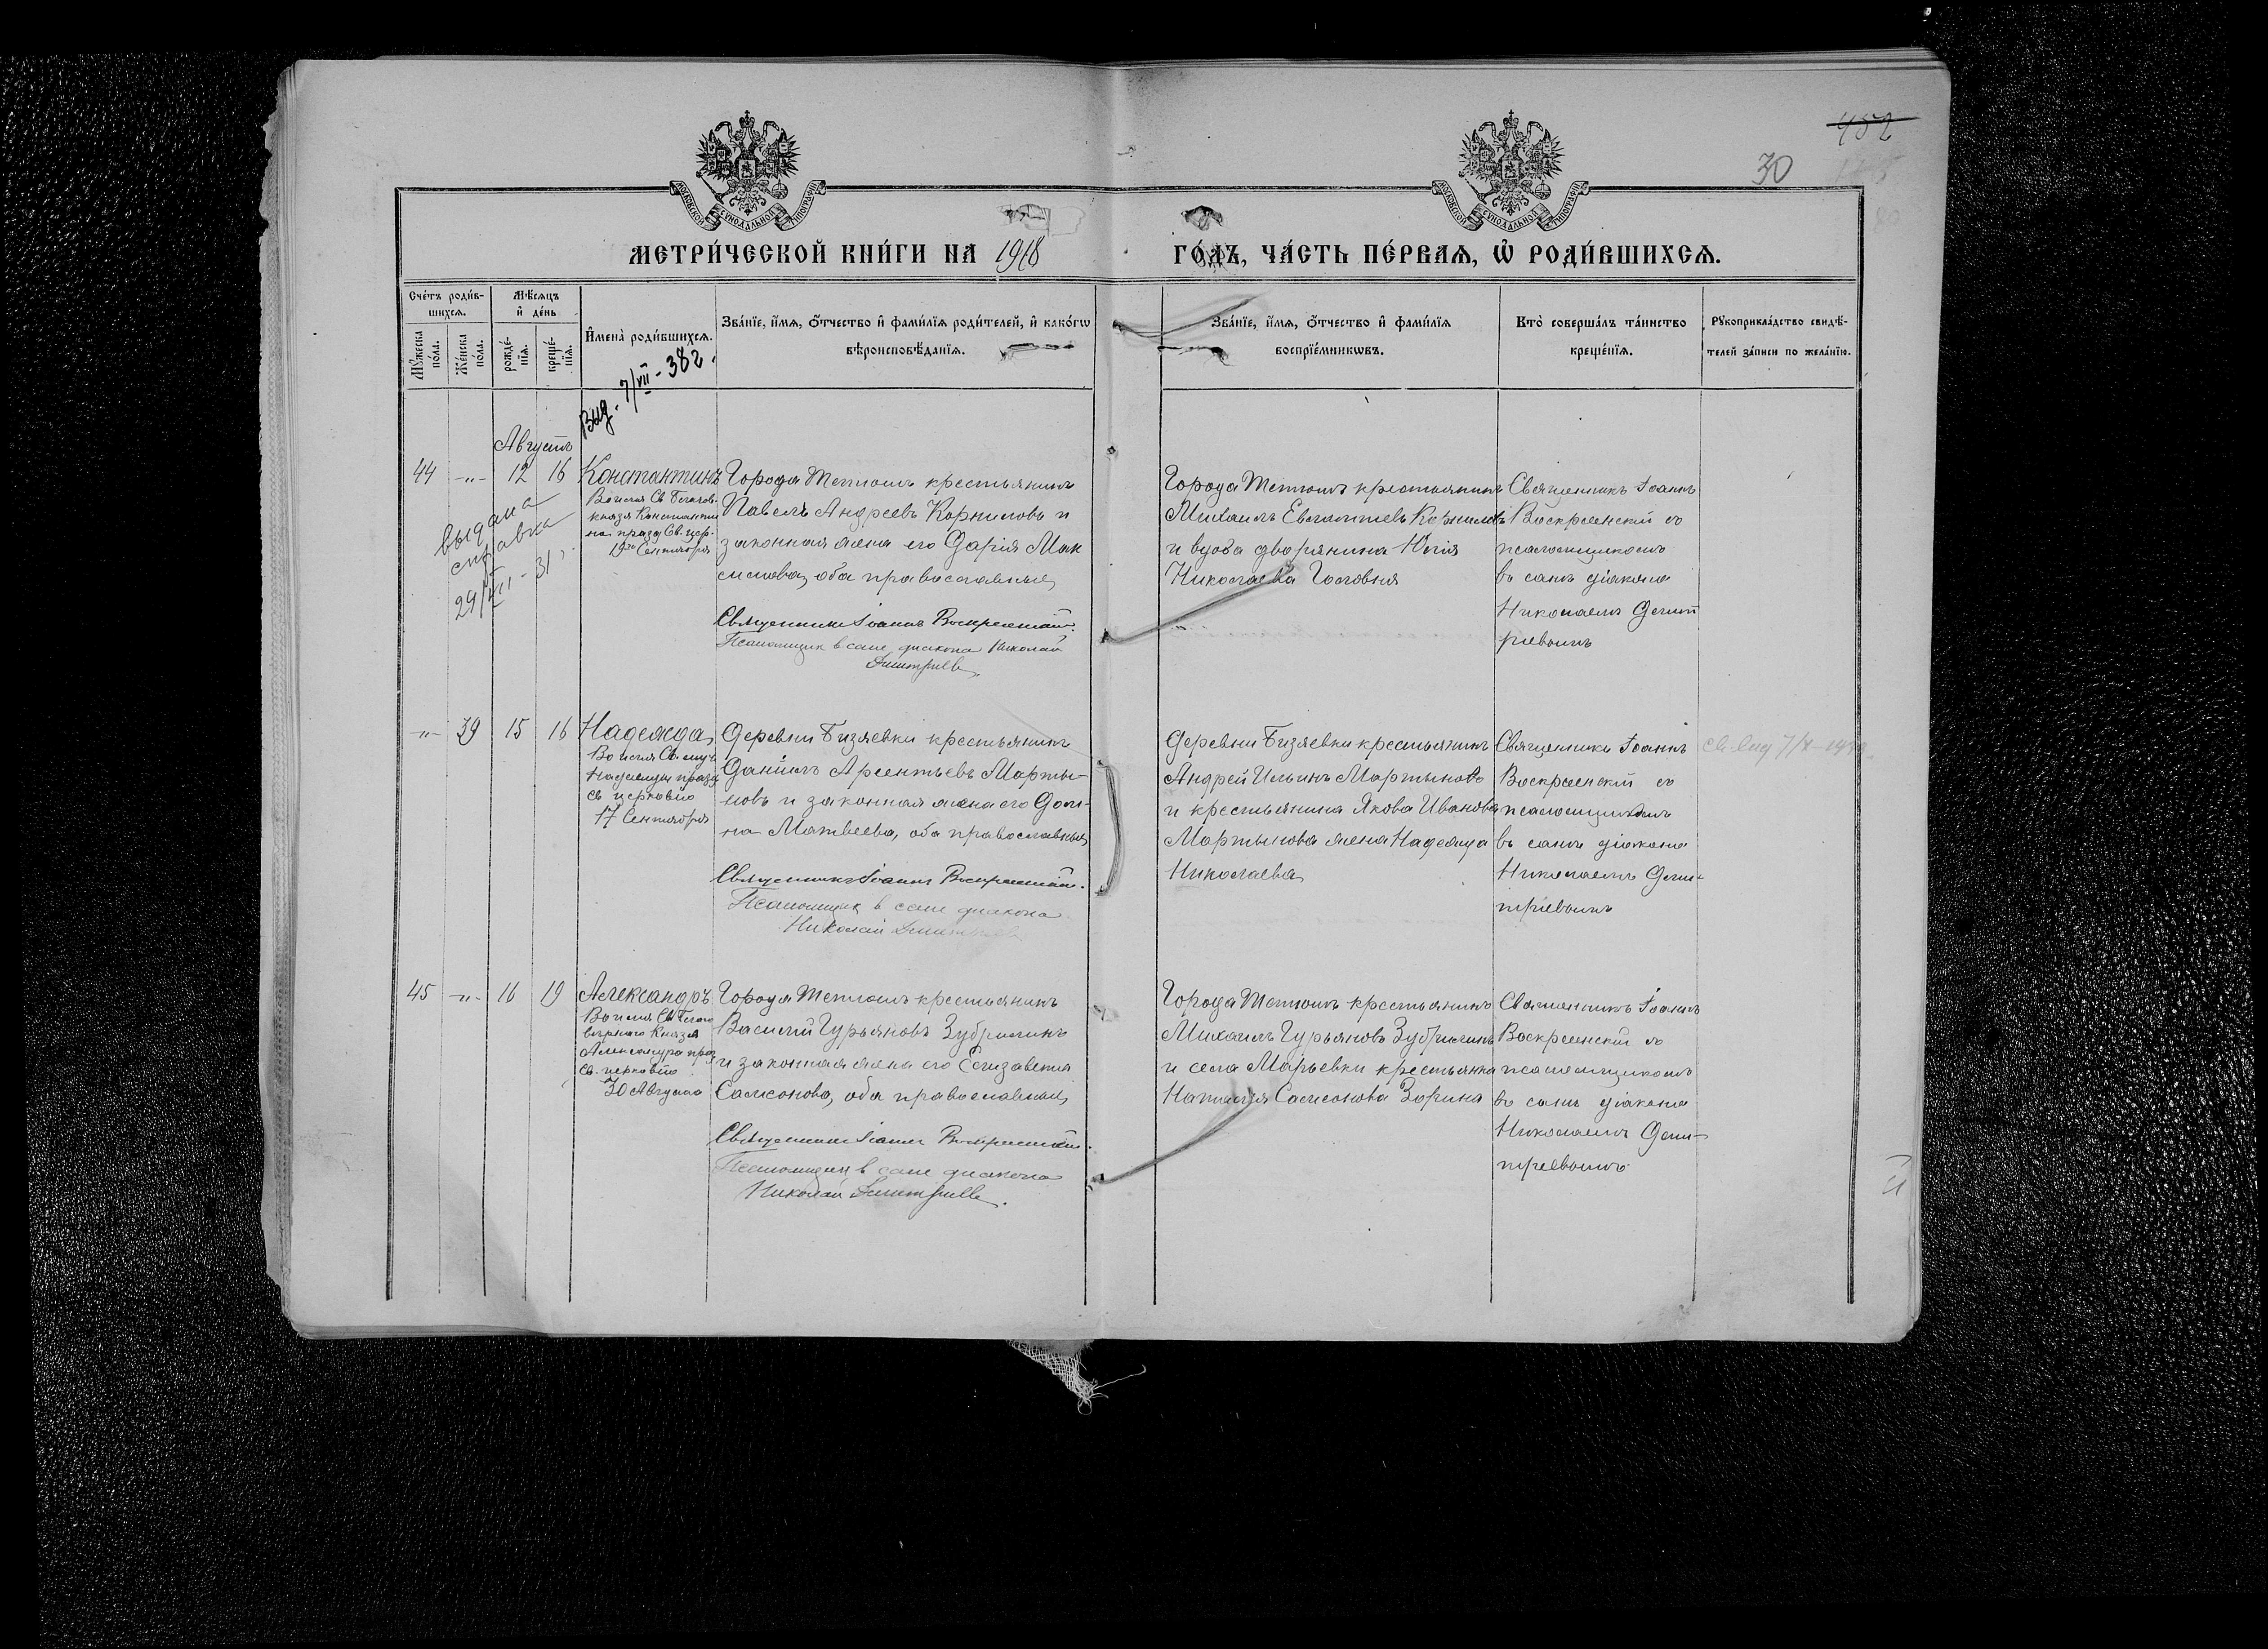 452
30
МЕТРИ́ЧЕСКОЙ КНИ́ГИ НА 1918
ГО́ДЪ, ЧА́СТЬ ПЕ́РВАЯ, Ѡ҆ РОДИ́ВШИХСЯ.
Сче́тъ роди́в-
шихся.
Мѣ́сяцъ
и҆ де́нь
Мꙋ́жеска
по́ла.
Же́нска
пола.
рожде́-
нїя.
креще́-
нїя.
И҆мена̀ роди́вшихся.
Зва́нїе, и҆́мя, ѻ҆́тчество и҆ фами́лїя роди́телей, и҆ како́гѡ
вѣроисповѣ́данїя.
Зва́нїе, и҆́мя, ѻ҆́тчество и҆ фами́лїя
воспрїе́мникѡвъ.
Кто̀ соверша́лъ та́инство
креще́нїя.
Рꙋкоприкла́дство свидѣ́-
телей за́писи по жела́нїю.
Выд. 7/VII - 38 г.
Августъ
44 -"- 12 16
выдана
справка
29/VII - 31
Константинъ
Во имя Св. Благов.
князя Константина
на празд. Св. цер.
19го Сентября
Города Тетюшъ крестьянинъ
Павелъ Андреевъ Корниловъ и
законная жена его Дарія Мак
симова, оба православные
Священникъ Іоаннъ Воскресенскій.
Псаломщик в сане диакона Николай
Димитриевъ
Города Тетюшъ крестьянинъ
Михаилъ Евлампіевъ Корниловъ
и вдова дворянина Юлія
Николаева Головня
Священникъ Іоаннъ
Воскресенскій со
псаломщикомъ
въ санѣ діакона
Николаемъ Димит
ріевымъ
-"- 39 15 16
Надежда
Во имя Св. муч.
Надежды празд
св церковію
17 Сентября
Деревни Бизяевки крестьянинъ
Даніилъ Арсентьевъ Марты-
новъ и законная жена его Дом-
на Матвеева, оба православные
Священникъ Іоаннъ Воскресенскій.
Псаломщик в сане диакона
Николай Димитриев
Деревни Бизяевки крестьянинъ
Андрей Ильинъ Мартыновъ
и крестьянина Якова Иванова
Мартынова жена Надежда
Николаева
Священникъ Іоаннъ
Воскресенскій со
псаломщикомъ
въ санѣ діакона
Николаемъ Дими-
тріевымъ
45 -"- 16 19
Александръ
Во имя Св. Благо
вѣрнаго Князя
Александра праз
св. церковію
30 Августа
Города Тетюшъ крестьянинъ
Василій Гурьяновъ Зубрилинъ
и законная жена его Елизавета
Самсонова, оба православные
Священникъ Іоаннъ Воскресенскій.
Псаломщик в сане диакона
Николай Димитриевъ.
Города Тетюшъ крестьянинъ
Михаилъ Гурьяновъ Зубрилинъ
и села Марьевки крестьянка
Наталія Самсонова Зорина
Священникъ Іоаннъ
Воскресенскій со
псаломщикомъ
въ санѣ діакона
Николаемъ Дими-
тріевымъ